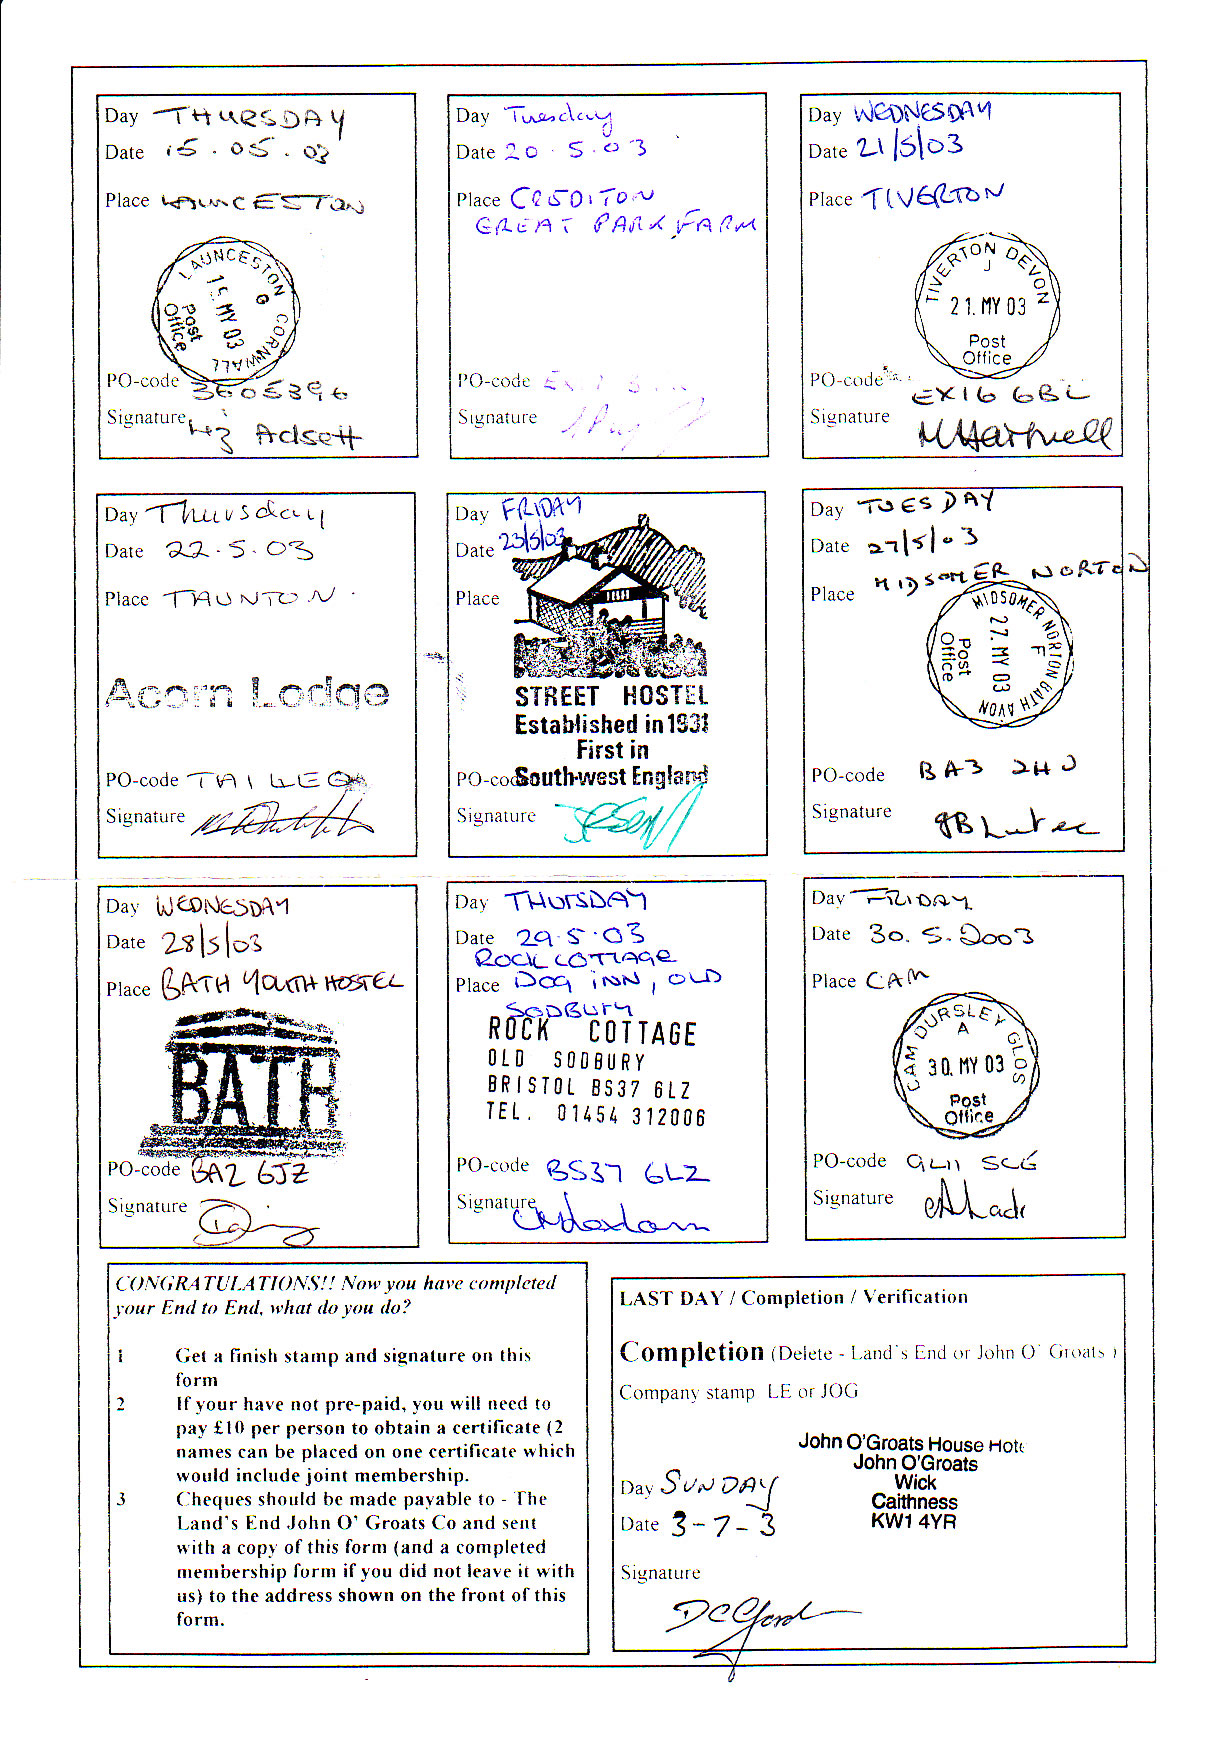 Day THURSDAY
Date 15.05.03
Place LAUNCESTON
LAUNCESTON CORNWALL
G
15. MY 03
Post
Office
PO-code 3605396
Signature Adsett
Day Tuesday
Date 20.5.03
Place CREDITON
GREAT PARK FARM
PO-code
Signature
Day WEDNESDAY
Date 21/5/03
Place TIVERTON
TIVERTON DEVON
J
21. MY 03
Post
Office
PO-code EX16 6BL
Signature M Hartnell
Day Thursday
Date 22.5.03
Place TAUNTON
Acorn Lodge
PO-code TA1
Signature
Day FRIDAY
Date 23/5/03
Place
STREET HOSTEL
Established in 1931
First in
South-west England
PO-code
Signature
Day TUESDAY
Date 27/5/03
Place MIDSOMER NORTON
MIDSOMER NORTON BATH AVON
F
27. MY 03
Post
Office
PO-code BA3 2HJ
Signature
Day WEDNESDAY
Date 28/5/03
Place BATH YOUTH HOSTEL
BATH
PO-code BA2 6JZ
Signature
Day THURSDAY
Date 29.5.03
ROCK COTTAGE
Place DOG INN, OLD
SODBURY
ROCK COTTAGE
OLD SODBURY
BRISTOL BS37 6LZ
TEL. 01454 312006
PO-code BS37 6LZ
Signature
Day FRIDAY
Date 30.5.2003
Place CAM
CAM DURSLEY GLOS
A
30. MY 03
Post
Office
PO-code GL11 5LG
Signature
CONGRATULATIONS!! Now you have completed
your End to End, what do you do?
1 Get a finish stamp and signature on this
form
2 If your have not pre-paid, you will need to
pay £10 per person to obtain a certificate (2
names can be placed on one certificate which
would include joint membership.
3 Cheques should be made payable to - The
Land's End John O' Groats Co and sent
with a copy of this form (and a completed
membership form if you did not leave it with
us) to the address shown on the front of this
form.
LAST DAY / Completion / Verification
Completion (Delete - Land's End or John O' Groats )
Company stamp LE or JOG
John O'Groats House Hote
John O'Groats
Wick
Caithness
KW1 4YR
Day SUNDAY
Date 3-7-3
Signature